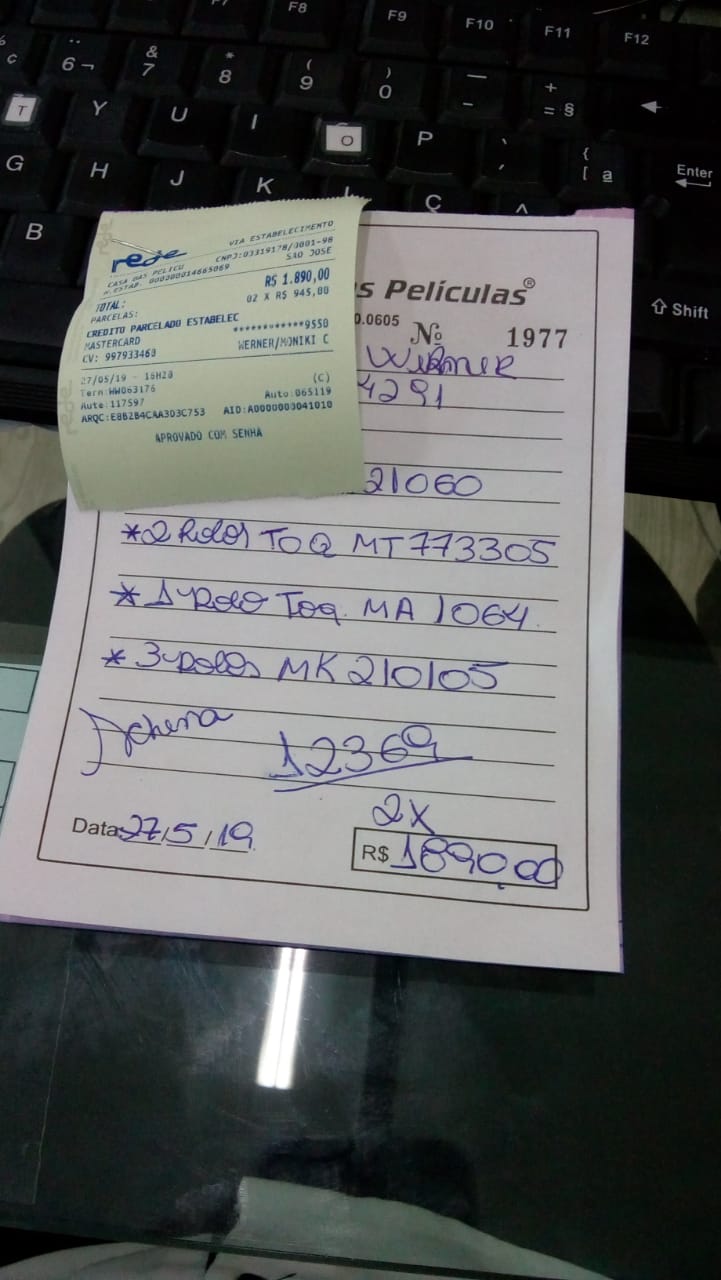 F7 F8 F9 F10 F11 F12
6 ¬ & 7 * 8 ( 9 ) 0 — - + = §
T Y U I O P ` ´ { [ ª Enter
G H J K L Ç ^
B
⇧ Shift
rede
VIA ESTABELECIMENTO
CASA DAS PELICU CNPJ:03319178/0001-98
N.ESTAB. 000000014665069 SAO JOSE
TOTAL: R$ 1.890,00
PARCELAS: 02 X R$ 945,00
CREDITO PARCELADO ESTABELEC
MASTERCARD ************9550
CV: 997933460 WERNER/MONIKI C
27/05/19 - 16H20 (C)
Term:WW063176 Auto:065119
Aute:117597 AID:A0000000041010
ARQC:E862B4CAA303C753
APROVADO COM SENHA
s Películas®
0.0605 Nº 1977
Werner
4291
21060
*2 Rolos TOQ MT773305
* 1 Rolo Toq. MA 1064.
* 3 Rolos MK 210105
12369
2X
Data: 27/5/19
R$ 1890,00